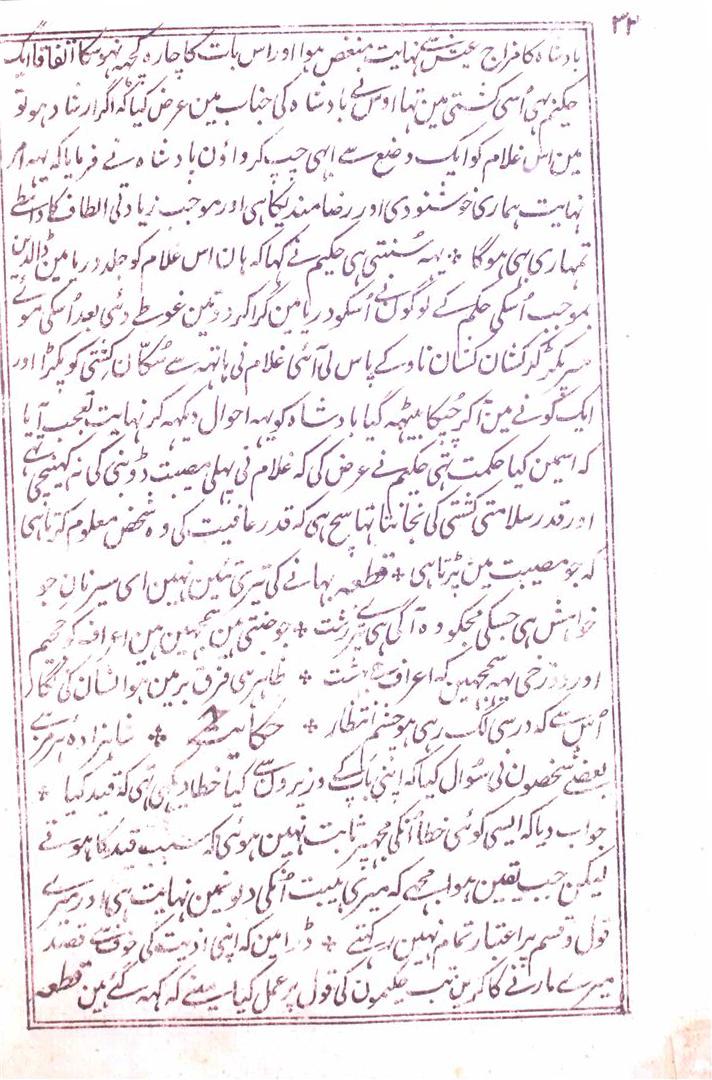 ۳۳
بادشاہ کا مزاج عیش سے نہایت منغض ہوا اور اس بات کا چارہ کچھہ نہو سکا اتفاقاً ایک
حکیم بہی اُسی کشتی مین تہا اوس نے بادشاہ کی جناب مین عرض کیا کہ اگر ارشاد ہو تو
مین اس غلام کو ایک وضع سے ابہی چپ کرواؤن بادشاہ نے فرمایا کہ یہہ امر
نہایت ہماری خوشنودی اور رضامندیکا ہی اور موجب زیادتی الطاف کا واسطے
تمہاری بہی ہوگا * یہہ سُنتی ہی حکیم نے کہا کہ ہان اس غلام کو جلد دریا مین ڈالدین
بموجب اُسکی حکم کے لوگون نے اُسکو دریا مین گرا کر دو تین غوطے دئی بعد اُسکی موئے
سر پکڑ کر کشان کشان ناو کے پاس لی آئی غلام نی ہاتہہ سے سُکّان کشتی کو پکڑا اور
ایک گونے مین آ کر چُپکا بیٹہہ گیا بادشاہ کو یہہ احوال دیکہہ کر نہایت تعجب آیا
کہ اسمین کیا حکمت تہی حکیم نے عرض کی کہ غلام نی پہلی مصیبت ڈوبنی کی نہ کہینچی تہی
اور قدر سلامتی کشتی کی نجانتا تہا سچ ہی کہ قدر عافیت کی وہ شخص معلوم کرتا ہی
کہ جو مصیبت مین پڑتا ہی * قطعہ بہانے کی تیری تئین نہین ای سیر نان جو
خواہش ہی جسکی مجکو وہ آگی ہی تیرے زشت * جو جنتی ہین سمجہین ہین اعراف کو جحیم
اور دوزخی یہہ سمجہین کہ اعراف ہے بہشت * ظاہر ہی فرق بر مین ہو انسان کی نگار
اُس سے کہ در سی لگ رہی ہو چشم انتظار * حکایت * شاہزادہ ہرمز سے
بعضے شخصون نی سُوال کیا کہ اپنی باپ کے وزیرون سے کیا خطا دیکہی ہی کہ قید کیا *
جواب دیا کہ ایسی کوئی خطا اُنکی مجھپر ثابت نہین ہوئی کہ سبب قید کا ہووے
لیکن جب یقین ہوا مجہے کہ میری ہیبت اُنکی دلونمین نہایت ہی اور میرے
قول و قسم پر اعتبار تمام نہین رکہتے * ڈرا مین کہ اپنی اذیت کی خوف سے قصد
میرے مارنے کا کرین تب حکیمون کی قول پر عمل کیا مینے کہ کہہ گئے ہین قطعہ